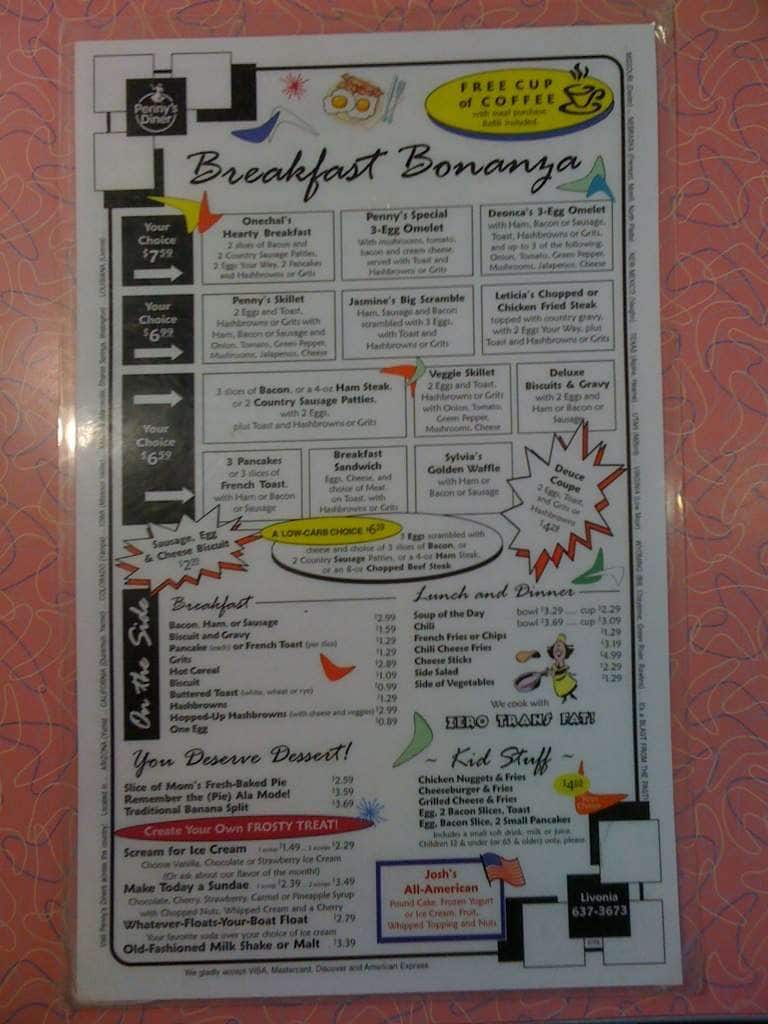 Penny's
Diner
FREE CUP
of COFFEE
with meal purchase
Refill included.
Breakfast Bonanza
Your
Choice
$7.59
Onechal's
Hearty Breakfast
2 slices of Bacon and
2 Country Sausage Patties,
2 Eggs Your Way, 2 Pancakes
and Hashbrowns or Grits
Penny's Special
3-Egg Omelet
With mushrooms, tomato,
bacon and cream cheese,
served with Toast and
Hashbrowns or Grits
Deonca's 3-Egg Omelet
with Ham, Bacon or Sausage,
Toast, Hashbrowns or Grits,
and up to 3 of the following:
Onion, Tomato, Green Pepper,
Mushrooms, Jalapenos, Cheese
Your
Choice
$6.99
Penny's Skillet
2 Eggs and Toast,
Hashbrowns or Grits with
Ham, Bacon or Sausage and
Onion, Tomato, Green Pepper,
Mushrooms, Jalapenos, Cheese
Jasmine's Big Scramble
Ham, Sausage and Bacon
scrambled with 3 Eggs,
with Toast and
Hashbrowns or Grits
Leticia's Chopped or
Chicken Fried Steak
topped with country gravy,
with 2 Eggs Your Way, plus
Toast and Hashbrowns or Grits
Your
Choice
$6.59
3 slices of Bacon, or a 4-oz Ham Steak,
or 2 Country Sausage Patties,
with 2 Eggs,
plus Toast and Hashbrowns or Grits
Veggie Skillet
2 Eggs and Toast,
Hashbrowns or Grits
with Onion, Tomato,
Green Pepper,
Mushrooms, Cheese
Deluxe
Biscuits & Gravy
with 2 Eggs and
Ham or Bacon or
Sausage
3 Pancakes
or 3 slices of
French Toast,
with Ham or Bacon
or Sausage
Breakfast
Sandwich
Eggs, Cheese, and
choice of Meat,
on Toast, with
Hashbrowns or Grits
Sylvia's
Golden Waffle
with Ham or
Bacon or Sausage
Deuce
Coupe
2 Eggs, Toast,
and Grits or
Hashbrowns
$4.29
Sausage, Egg
& Cheese Biscuit
A LOW-CARB CHOICE $6.59
3 Eggs scrambled with
cheese and choice of 3 slices of Bacon, or
2 Country Sausage Patties, or a 4-oz Ham Steak,
or an 8-oz Chopped Beef Steak
On the Side
Breakfast
Bacon, Ham, or Sausage $2.99
Biscuit and Gravy $1.59
Pancake (each) or French Toast (per slice) $1.29
Grits $1.29
Hot Cereal $2.89
Biscuit $1.09
Buttered Toast (white, wheat or rye) $0.99
Hashbrowns $1.29
Hopped-Up Hashbrowns (with cheese and veggies) $2.99
One Egg $0.89
Lunch and Dinner
Soup of the Day bowl $3.29 .... cup $2.29
Chili bowl $3.69 .... cup $3.09
French Fries or Chips $1.29
Chili Cheese Fries $3.19
Cheese Sticks $4.99
Side Salad $2.29
Side of Vegetables $1.29
We cook with
ZERO TRANS FAT!
You Deserve Dessert!
Slice of Mom's Fresh-Baked Pie $2.59
Remember the (Pie) Ala Mode! $3.59
Traditional Banana Split $3.69
Create Your Own FROSTY TREAT!
Scream for Ice Cream 1 scoop $1.49 ... 2 scoops $2.29
Choose Vanilla, Chocolate or Strawberry Ice Cream
(Or ask about our flavor of the month!)
Make Today a Sundae 1 scoop $2.39 ... 2 scoops $3.49
Chocolate, Cherry, Strawberry, Carmel or Pineapple Syrup
with Chopped Nuts, Whipped Cream and a Cherry
Whatever-Floats-Your-Boat Float $2.79
Your favorite soda over your choice of ice cream
Old-Fashioned Milk Shake or Malt $3.39
~ Kid Stuff ~
Chicken Nuggets & Fries
Cheeseburger & Fries
Grilled Cheese & Fries
Egg, 2 Bacon Slices, Toast
Egg, Bacon Slice, 2 Small Pancakes
Includes a small soft drink, milk or juice.
Children 12 & under (or 65 & older) only, please.
Your
Choice
Josh's
All-American
Pound Cake, Frozen Yogurt
or Ice Cream, Fruit,
Whipped Topping and Nuts
Livonia
637-3673
We gladly accept VISA, Mastercard, Discover and American Express.